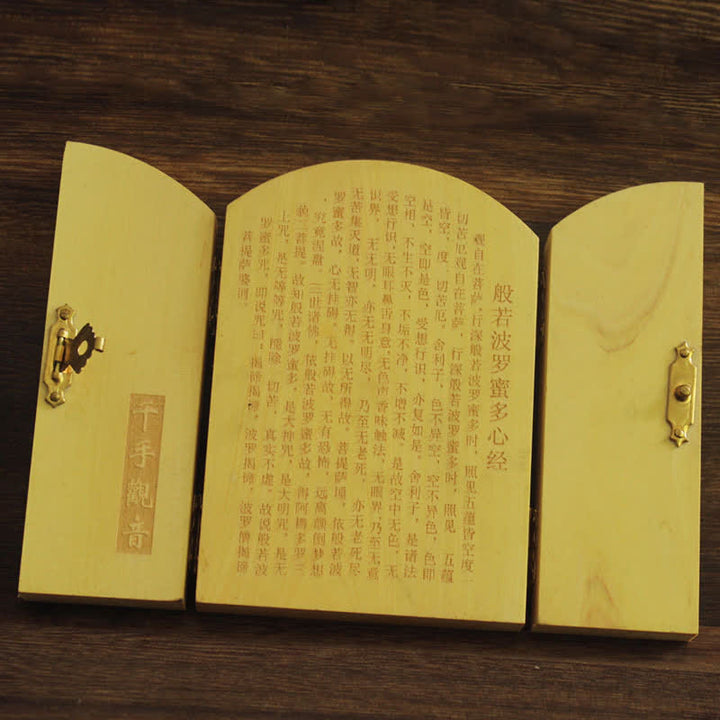 般若波罗蜜多心经
观自在菩萨,行深般若波罗蜜多时,照见五蕴皆空度一
切苦厄观自在菩萨,行深般若波罗蜜多时,照见 五蕴
皆空,度一切苦厄。舍利子,色不异空,空不异色,色即
是空,空即是色,受想行识,亦复如是。舍利子,是诸法
空相,不生不灭,不垢不净,不增不减。是故空中无色,无
受想行识,无眼耳鼻舌身意,无色声香味触法,无眼界,乃至无意
识界,无无明,亦无无明尽,乃至无老死,亦无老死尽
无苦集灭道,无智亦无得。以无所得故。菩提萨埵,依般若波
罗蜜多故,心无挂碍。无挂碍故,无有恐怖,远离颠倒梦想
,究竟涅槃。三世诸佛,依般若波罗蜜多故,得阿耨多罗三
藐三菩提。故知般若波罗蜜多,是大神咒,是大明咒,是无
上咒,是无等等咒,能除一切苦,真实不虚。故说般若波
罗蜜多咒,即说咒曰:揭谛揭谛,波罗揭谛,波罗僧揭谛
菩提萨婆诃。
千手觀音